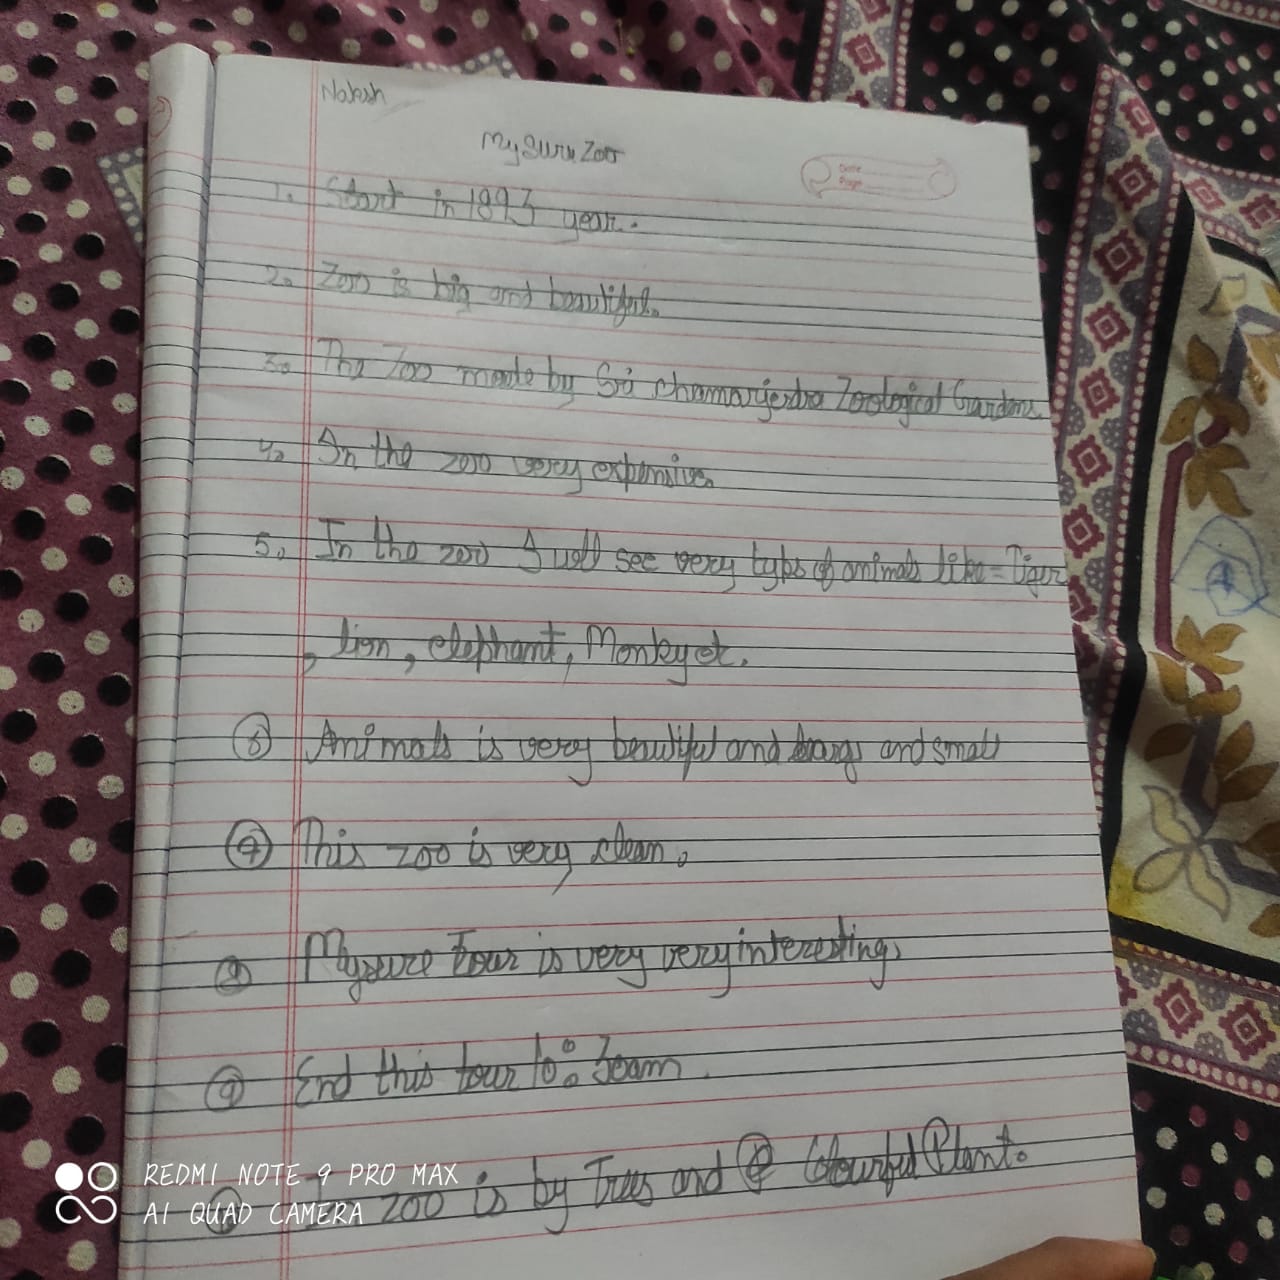 Naksh
Mysuru Zoo
Date
Page
1. Start in 1893 year.
2. Zoo is big and beautiful.
3. The Zoo made by Sri chamarjendra Zoological Gardens
4. In the zoo very expensive.
5. In the zoo I will see very typs of animals like = Tiger
, lion, elephant, Monkey et.
6 Animals is very beautiful and and small
7 This zoo is very clean.
8 Mysure Tour is very very interesting.
9 End this tour 10:30am.
zoo is by Trees and Colourful Plant.
REDMI NOTE 9 PRO MAX
AI QUAD CAMERA